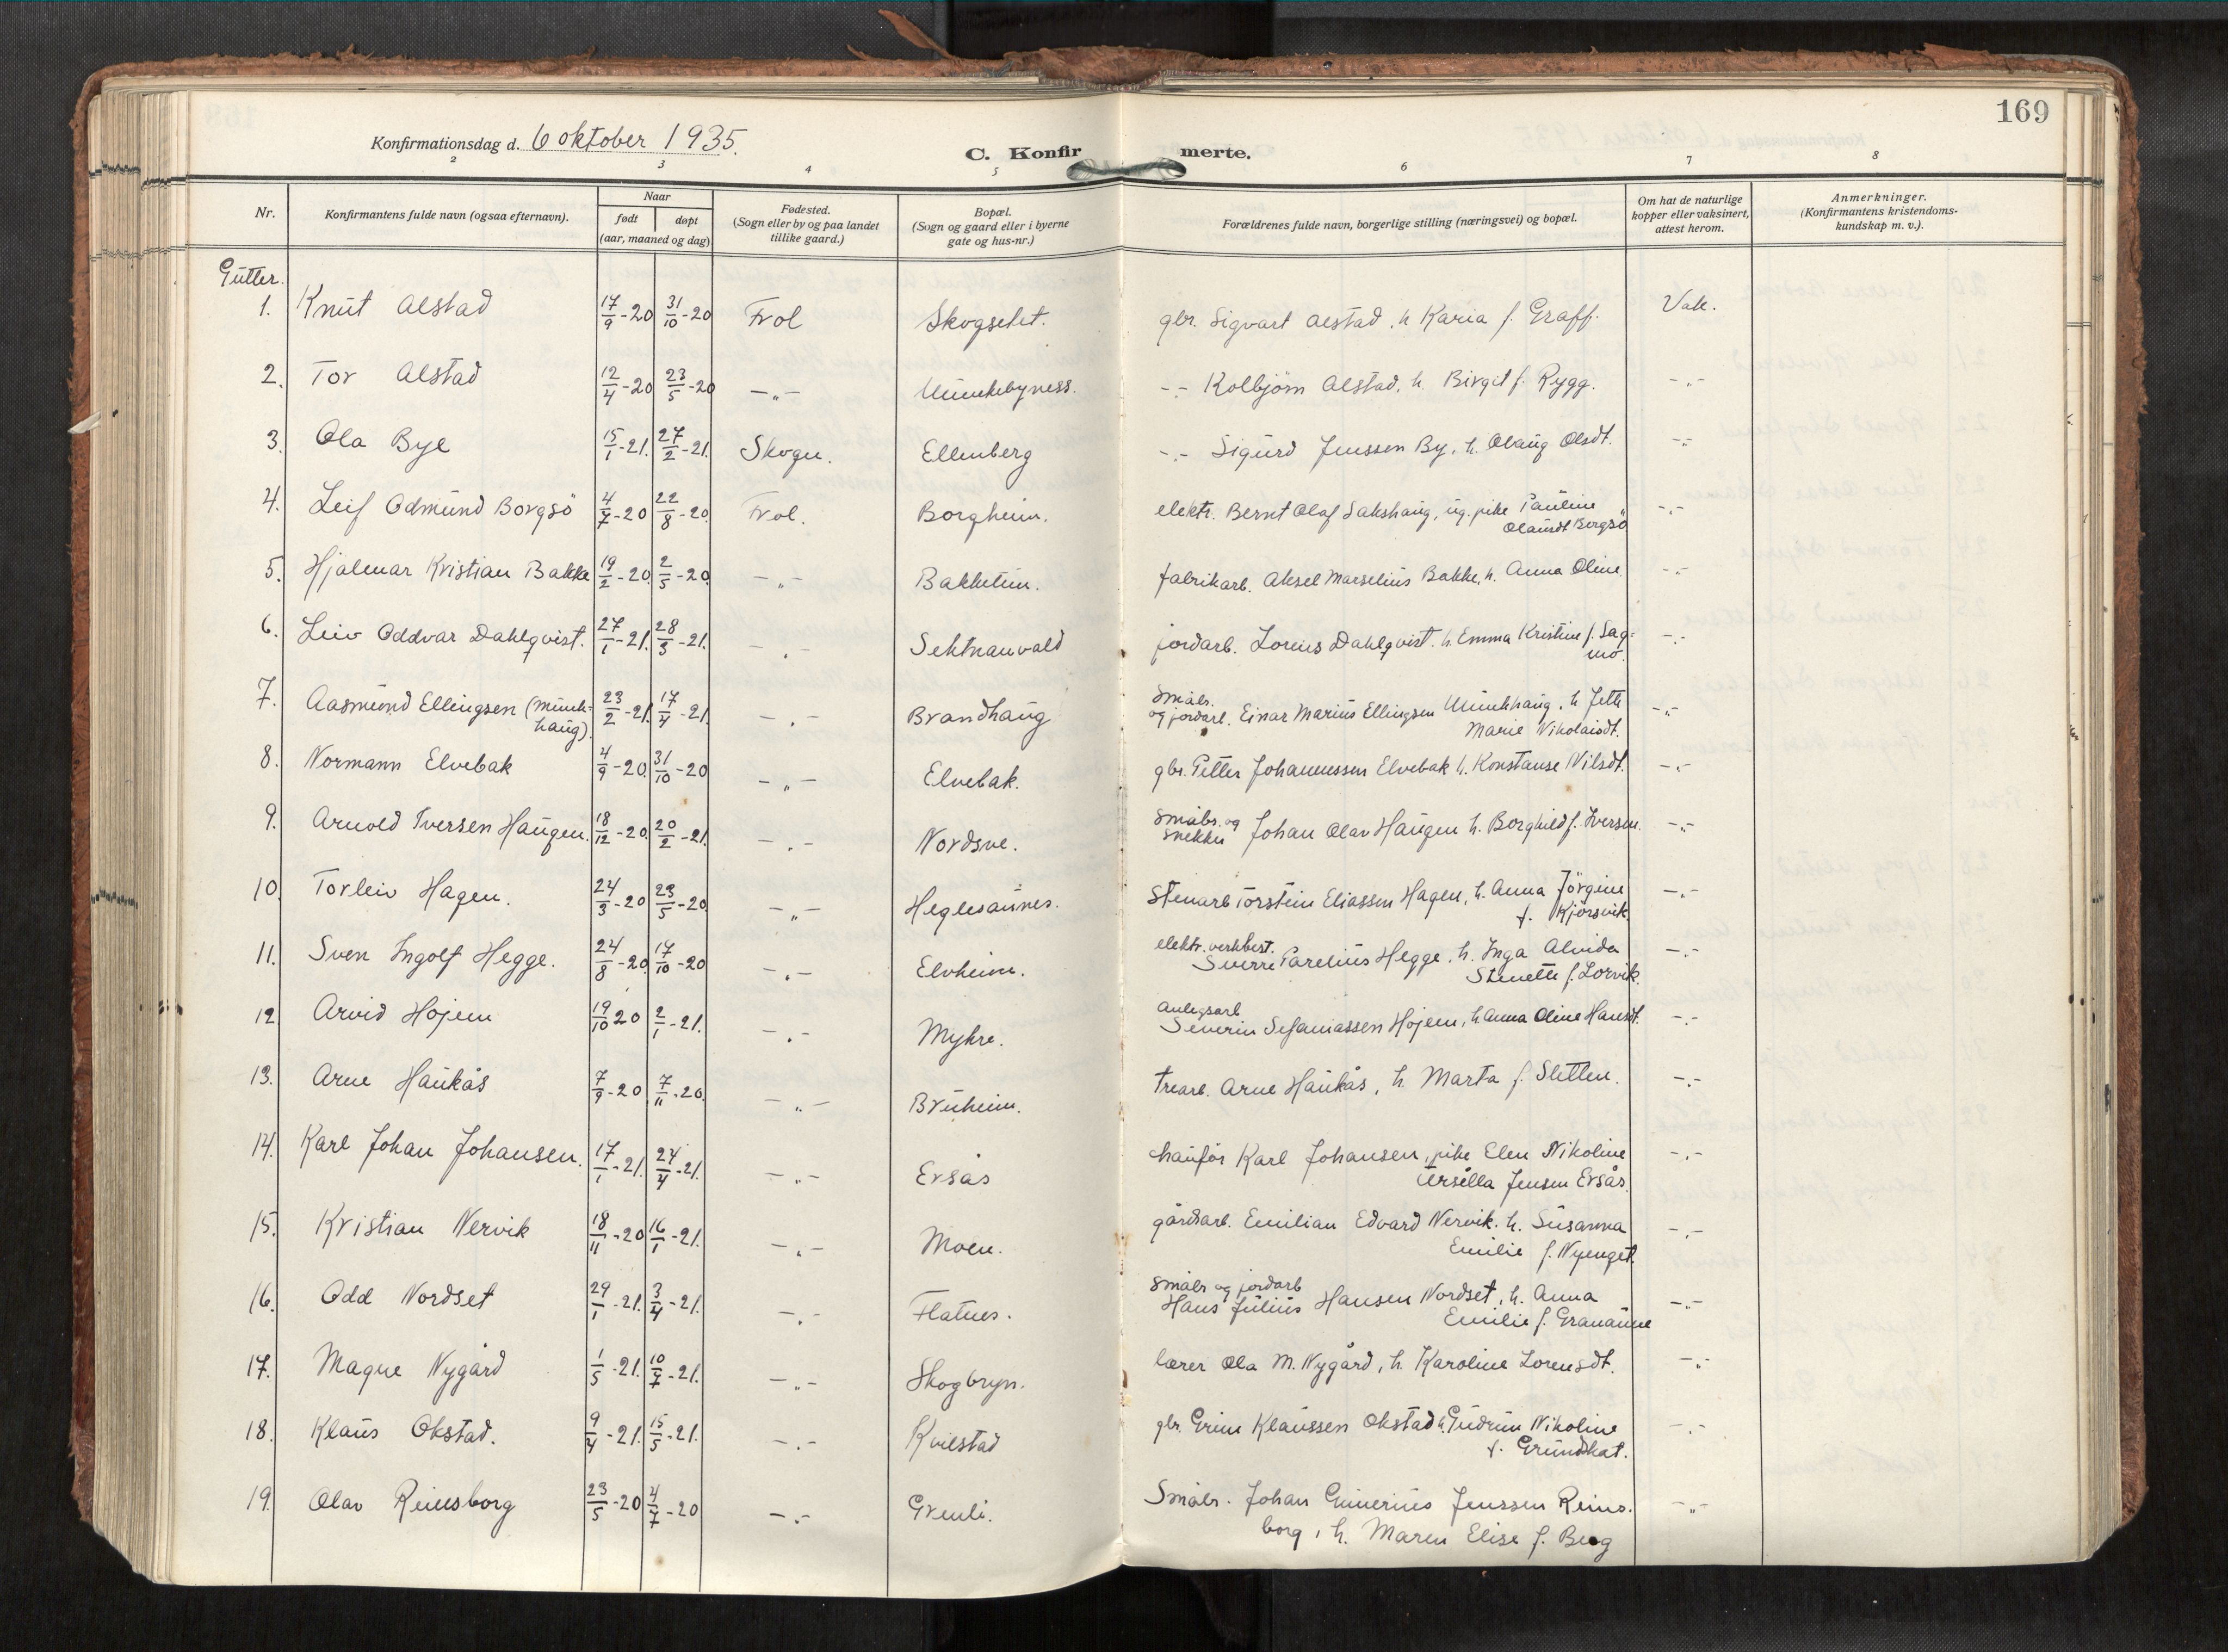 169
Konfirmationsdag d. 6 oktober 1935.
C. Konfirmerte.
2 3 4 5 6 7 8
Nr. Konfirmantens fulde navn (ogsaa efternavn). Naar født døpt (aar, maaned og dag) Fødested. (Sogn eller by og paa landet tillike gaard.) Bopæl. (Sogn og gaard eller i byerne gate og hus-nr.) Forældrenes fulde navn, borgerlige stilling (næringsvei) og bopæl. Om hat de naturlige kopper eller vaksinert, attest herom. Anmerkninger. (Konfirmantens kristendoms-kundskap m. v.).
Gutter.
1. Knut Alstad 17/9-20 31/10-20 Frol Skogsetet. gbr. Sigvart Alstad, h Karia f. Graff. Vak.
2. Tor Alstad 12/4-20 23/5-20 -"- Munkebyness. -"- Kolbjörn Alstad, h. Birgit f. Rygg. -"-
3. Ola Bye 15/1-21. 27/2-21. Skogn. Ellenberg -"- Sigurd Jenssen By, h. Olaug Olsdt. -"-
4. Leif Odmund Borgsö 4/7-20 22/8-20. Frol. Borgheim. elektr. Bernt Olaf Sakshaug, ug. pike Pauline
Olausdt Borgsö -"-
5. Hjalmar Kristian Bakke 19/2-20. 2/5-20. -"- Bakketun. fabrikarb. Aksel Marselius Bakke, h. Anna Oline -"-
6. Leiv Oddvar Dahlqvist. 27/1-21. 28/3-21. -"- Sektnanvald jordarb. Lorens Dahlqvist. h. Emma Kristine f. Sag=
mo. -"-
7. Aasmund Ellingsen (Munk-
haug). 23/2-21. 17/4-21. -"- Brandhaug Småbr.
og jordarb. Einar Marius Ellingsen Munkhaug, h Jette
Marie Nikolaisdt. -"-
8. Normann Elvebak 4/9-20. 31/10-20 -"- Elvebak. gbr. Petter Johannessen Elvebak h. Konstanse Nilsdt. -"-
9. Arnold Iversen Haugen. 18/12-20. 20/2-21. -"- Nordsve. Småbr. og
snekker Johan Olav Haugen h. Borghild f. Iversen. -"-
10. Torleiv Hagen. 24/3-20 23/5-20 -"- Heglesaunes. Stenarb Torstein Eliassen Hagen, h. Anna Jörgine
f. Kjörsvik. -"-
11. Sven Ingolf Hegge. 24/8-20 17/10-20 -"- Elvheim. elektr. verkbest.
Sverre Parelius Hegge, h. Inga Alvida
Stenette f. Lorvik. -"-
12 Arvid Hojem 19/10 20 2/1-21. -"- Myhre. anlegsarb
Severin Sefaniassen Hojem, h Anna Oline Hansdt. -"-
13. Arne Haukås 7/9-20 7/11-20. -"- Bruheim. trearb. Arne Haukås, h. Marta f. Sletten. -"-
14. Karl Johan Johansen. 17/1-21. 24/4-21. -"- Ersås chauför Karl Johansen, pike Elen Nikoline
Ursella Jensen Ersås. -"-
15. Kristian Nervik 18/11-20 16/1-21. -"- Moen. gårdsarb. Emilian Edvard Nervik. h. Susanna
Emilie f. Nyenget. -"-
16. Odd Nordset 29/1-21. 3/4-21. -"- Flatnes. småbr og jordarb
Hans Julius Hansen Nordset, h. Anna
Emilie f. Granaune -"-
17. Magne Nygård 1/5-21. 10/7-21. -"- Skogbryn. lærer Ola M. Nygård, h. Karoline Lorensdt. -"-
18. Klaus Okstad. 9/4-21. 15/5-21. -"- Kvilstad gbr. Grim Klaussen Okstad h. Gudrun Nikoline
f. Grundskat. -"-
19. Olav Reinsborg 23/5-20 4/7-20 -"- Grenli. Småbr. Johan Jenssen Reins-
borg, h. Maren Elise f. Berg -"-